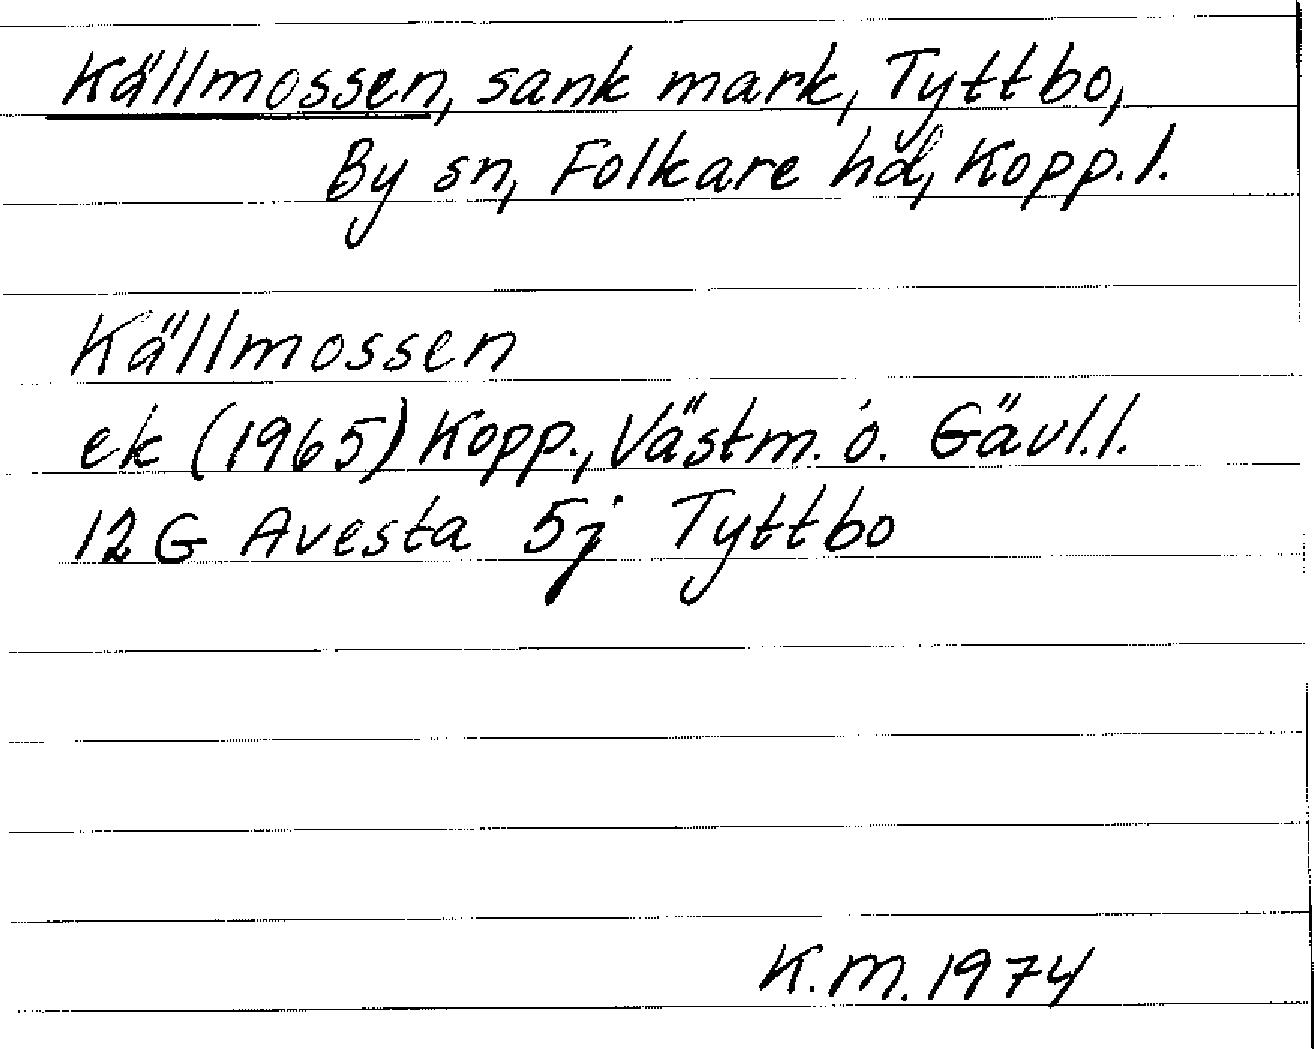 Källmossen, sank mark, Tyttbo,
By sn, Folkare hd, Kopp. l.
Källmossen
ek (1965) Kopp., Västm. o. Gävl. l.
12 G Avesta 5j Tyttbo
K.M. 1974